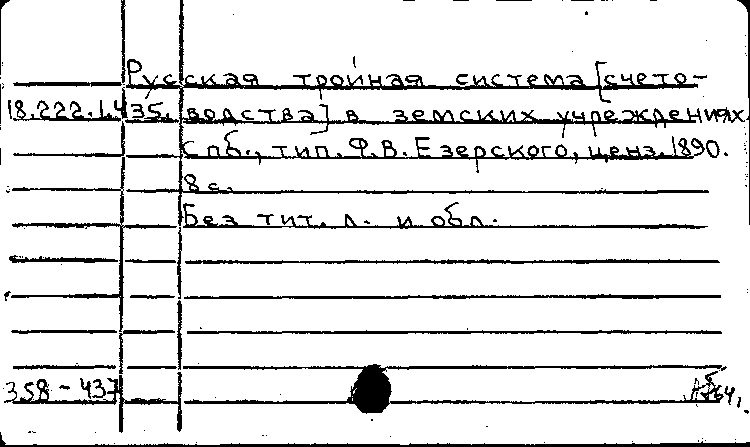 Русская тройная система [счето-
18.222.1.435. водства] в земских учреждениях.
Спб., тип. Ф.В. Езерского, ценз. 1890.
8 с.
Без тит. л. и обл.
358 - 437